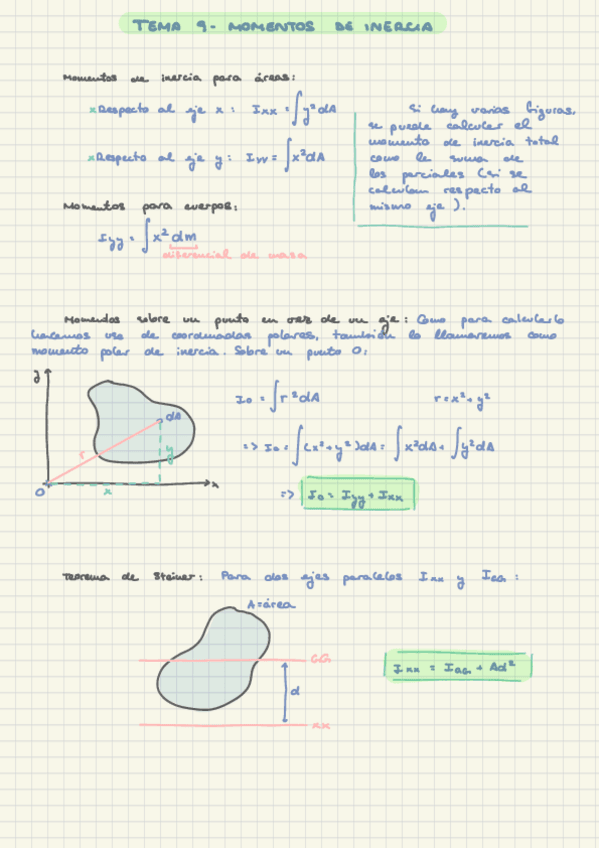 TEMA 9- MOMENTOS DE INERCIA
Momentos de inercia para áreas:
×Respecto al eje x : Ixx = ∫y²dA
×Respecto al eje y: Iyy = ∫x²dA
Si hay varias figuras,
se puede calcular el
momento de inercia total
como la suma de
los parciales (si se
calculan respecto al
mismo eje ).
Momentos para cuerpos:
Iyy = ∫x² dm
diferencial de masa
Momentos sobre un punto en vez de un eje: Como para calcularlo
hacemos uso de coordenadas polares, también lo llamaremos como
momento polar de inercia. Sobre un punto O:
y
dA
r
y
O
x
x
Io = ∫r²dA
r = x² + y²
=> Io = ∫(x² + y²)dA = ∫x²dA + ∫y²dA
=> Io = Iyy + Ixx
Teorema de Steiner: Para dos ejes paralelos Ixx y IGG :
A=área
GG
d
xx
Ixx = IGG + Ad²